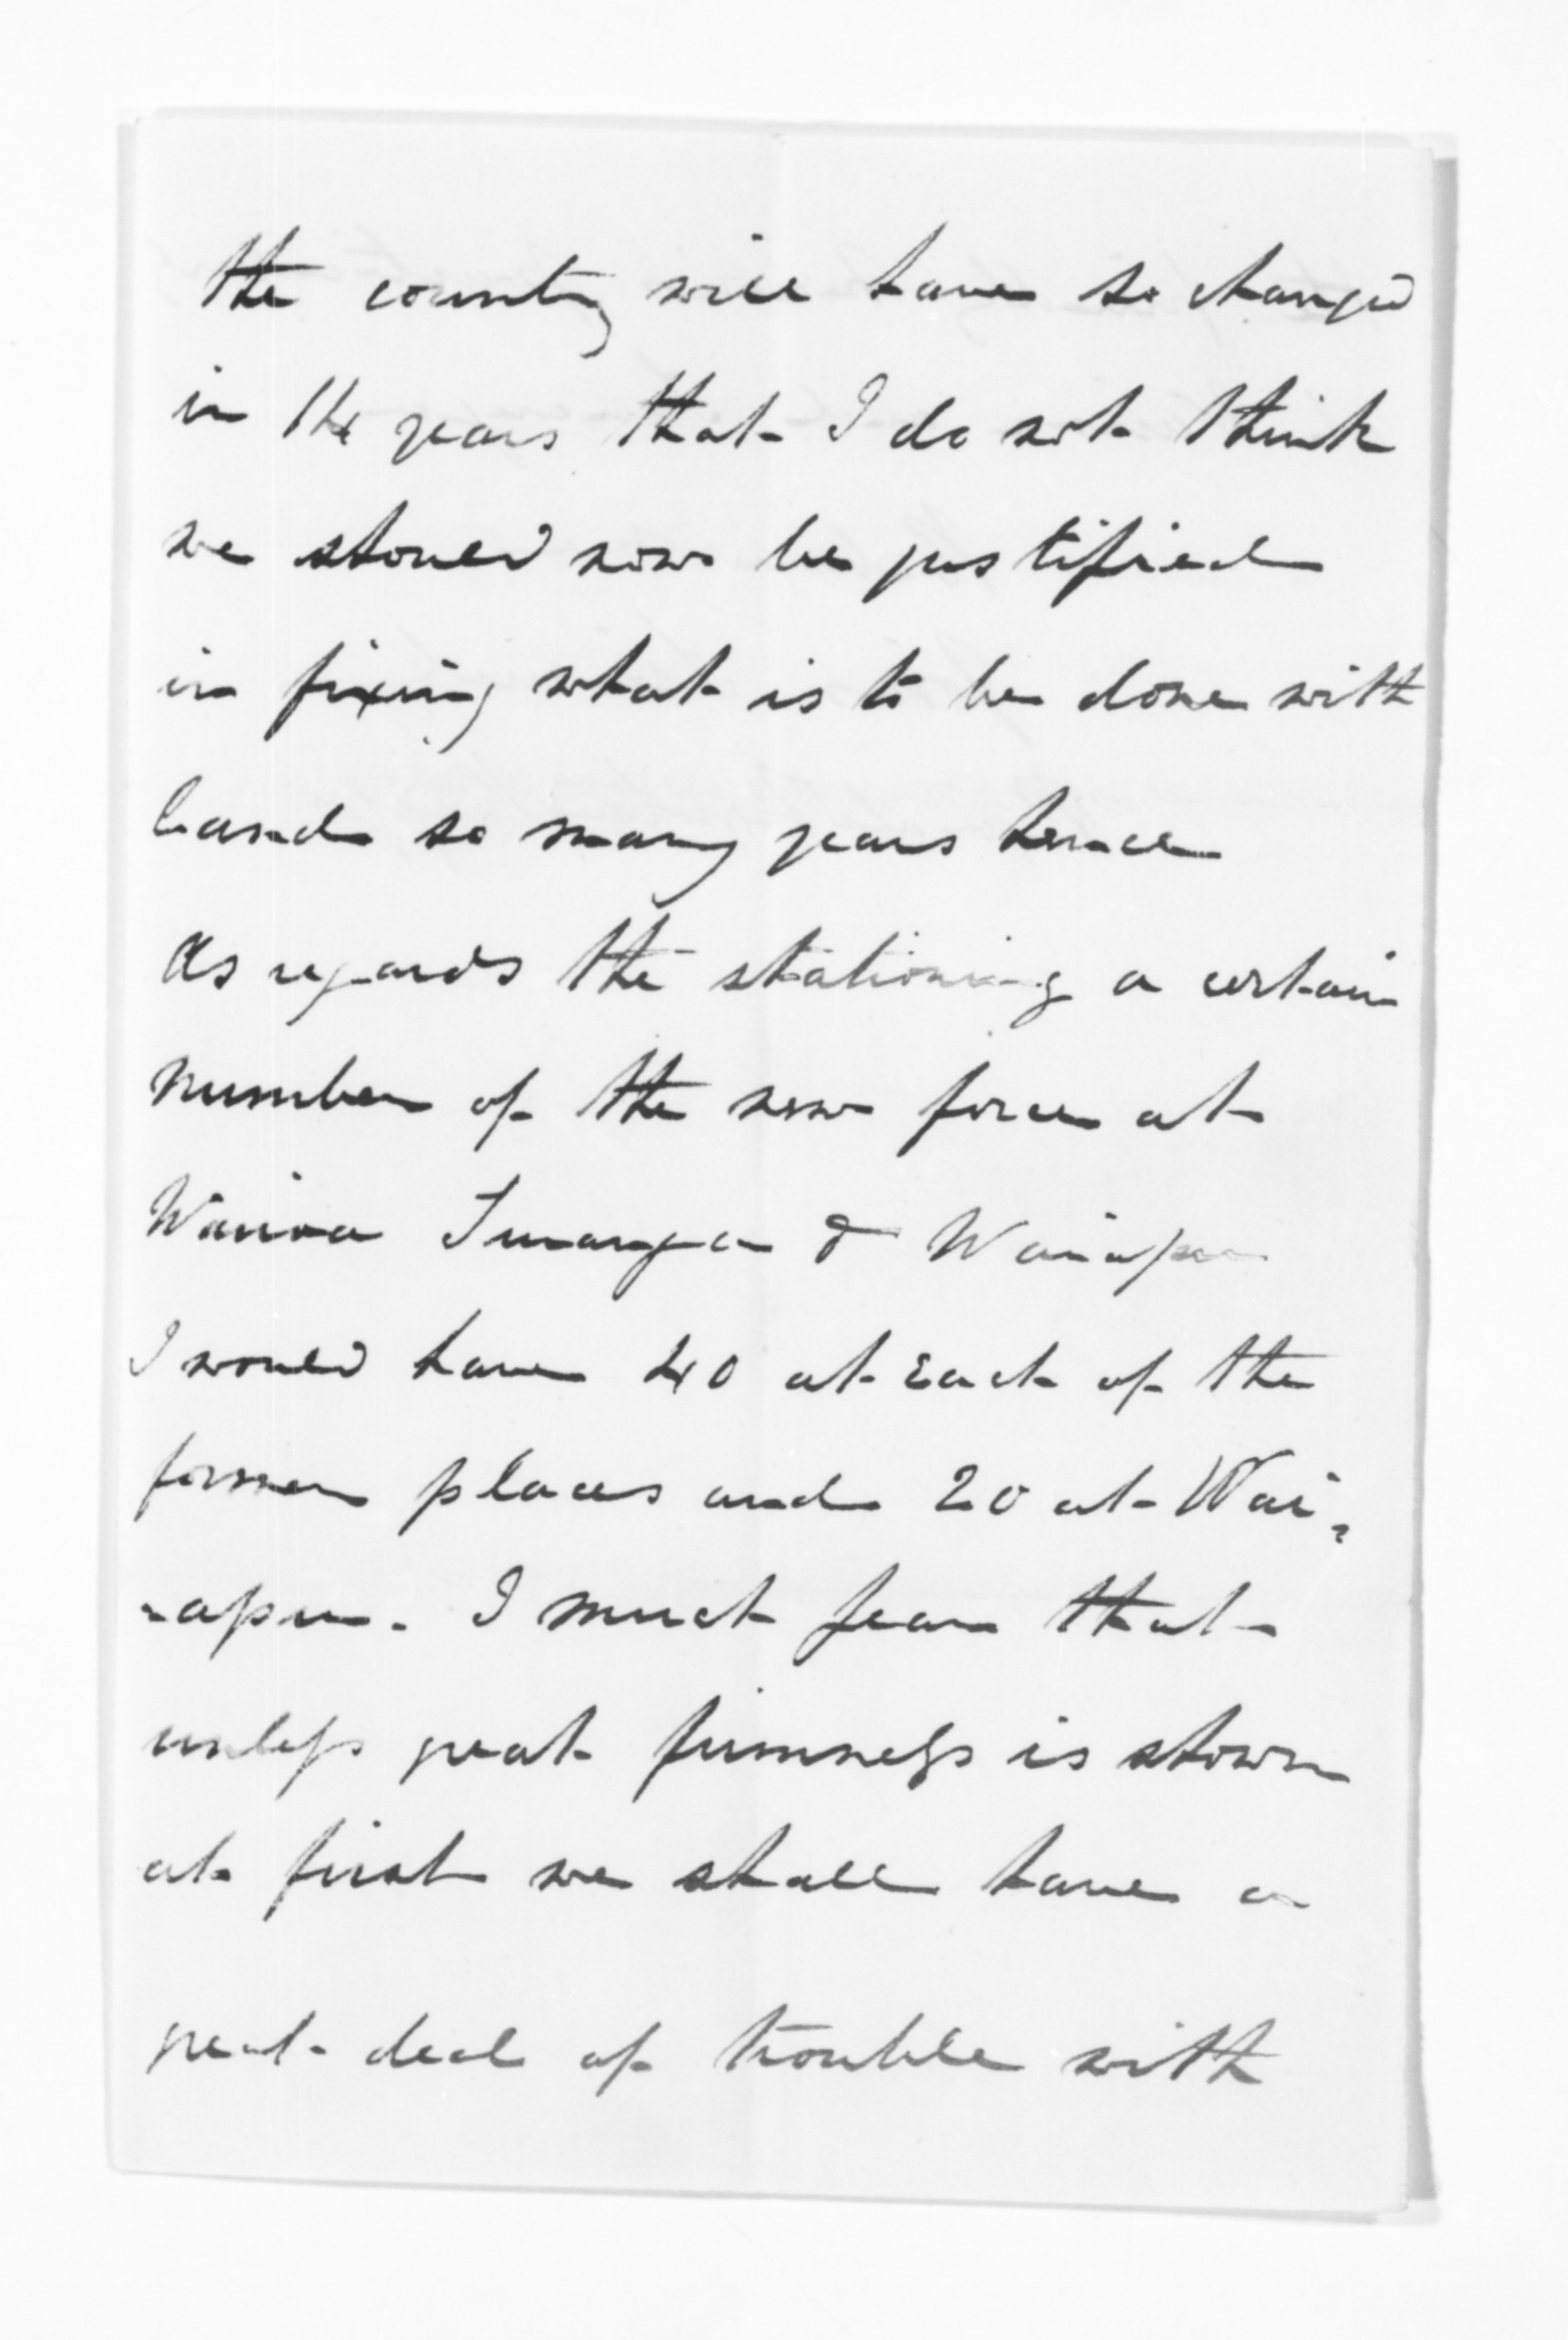 the country will have so changed
in 14 years that I do not think
we should now be justified
in fixing what is to be done with
land so many years hence
As regards the stationing a certain
number of the new force at
Wairoa Turanga & Waiapu
I would have 40 at each of the
former places and 20 at Wai-
-apu. I much fear that
unless great firmness is shown
at first we shall have a
great deal of trouble with